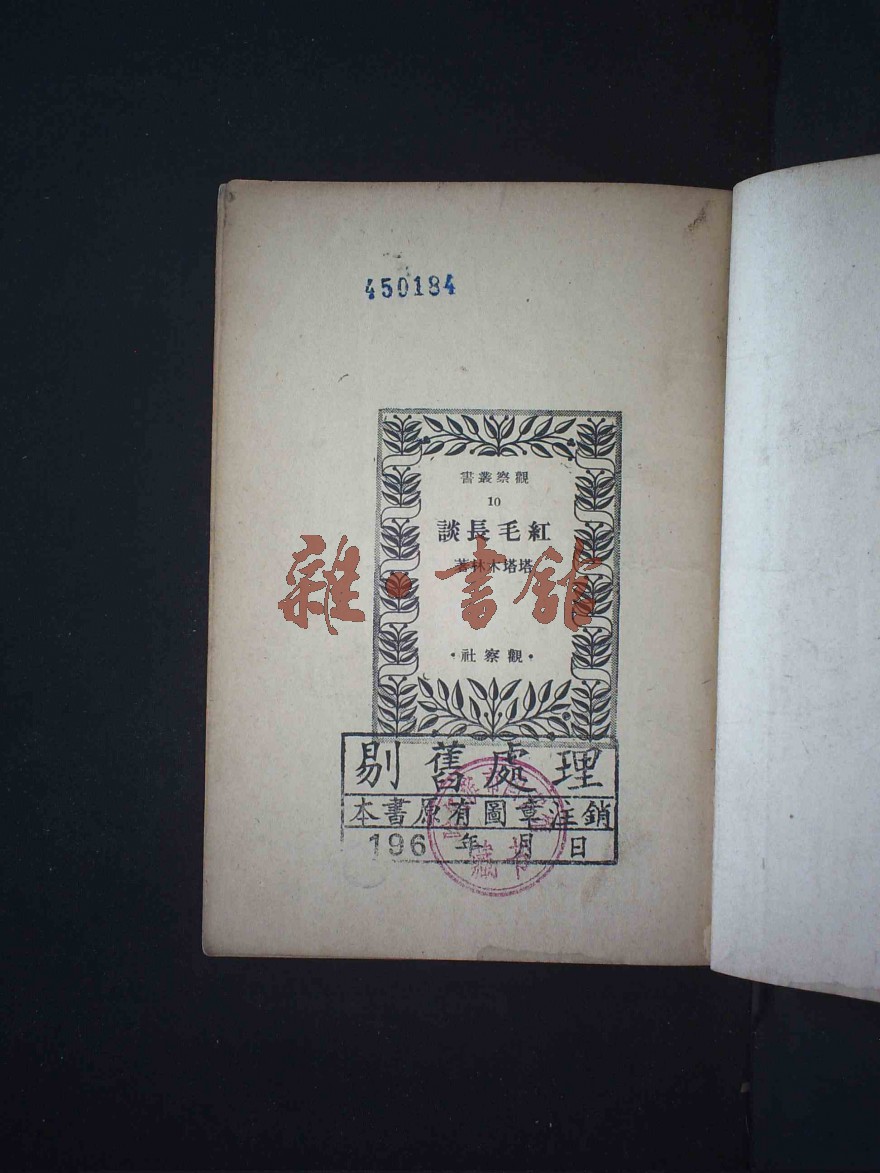 450184
觀察叢書
10
紅毛長談
塔塔木林著
雜·書館
·觀察社·
剔舊處理
本書原有圖章注銷
196 年 月 日
藏書